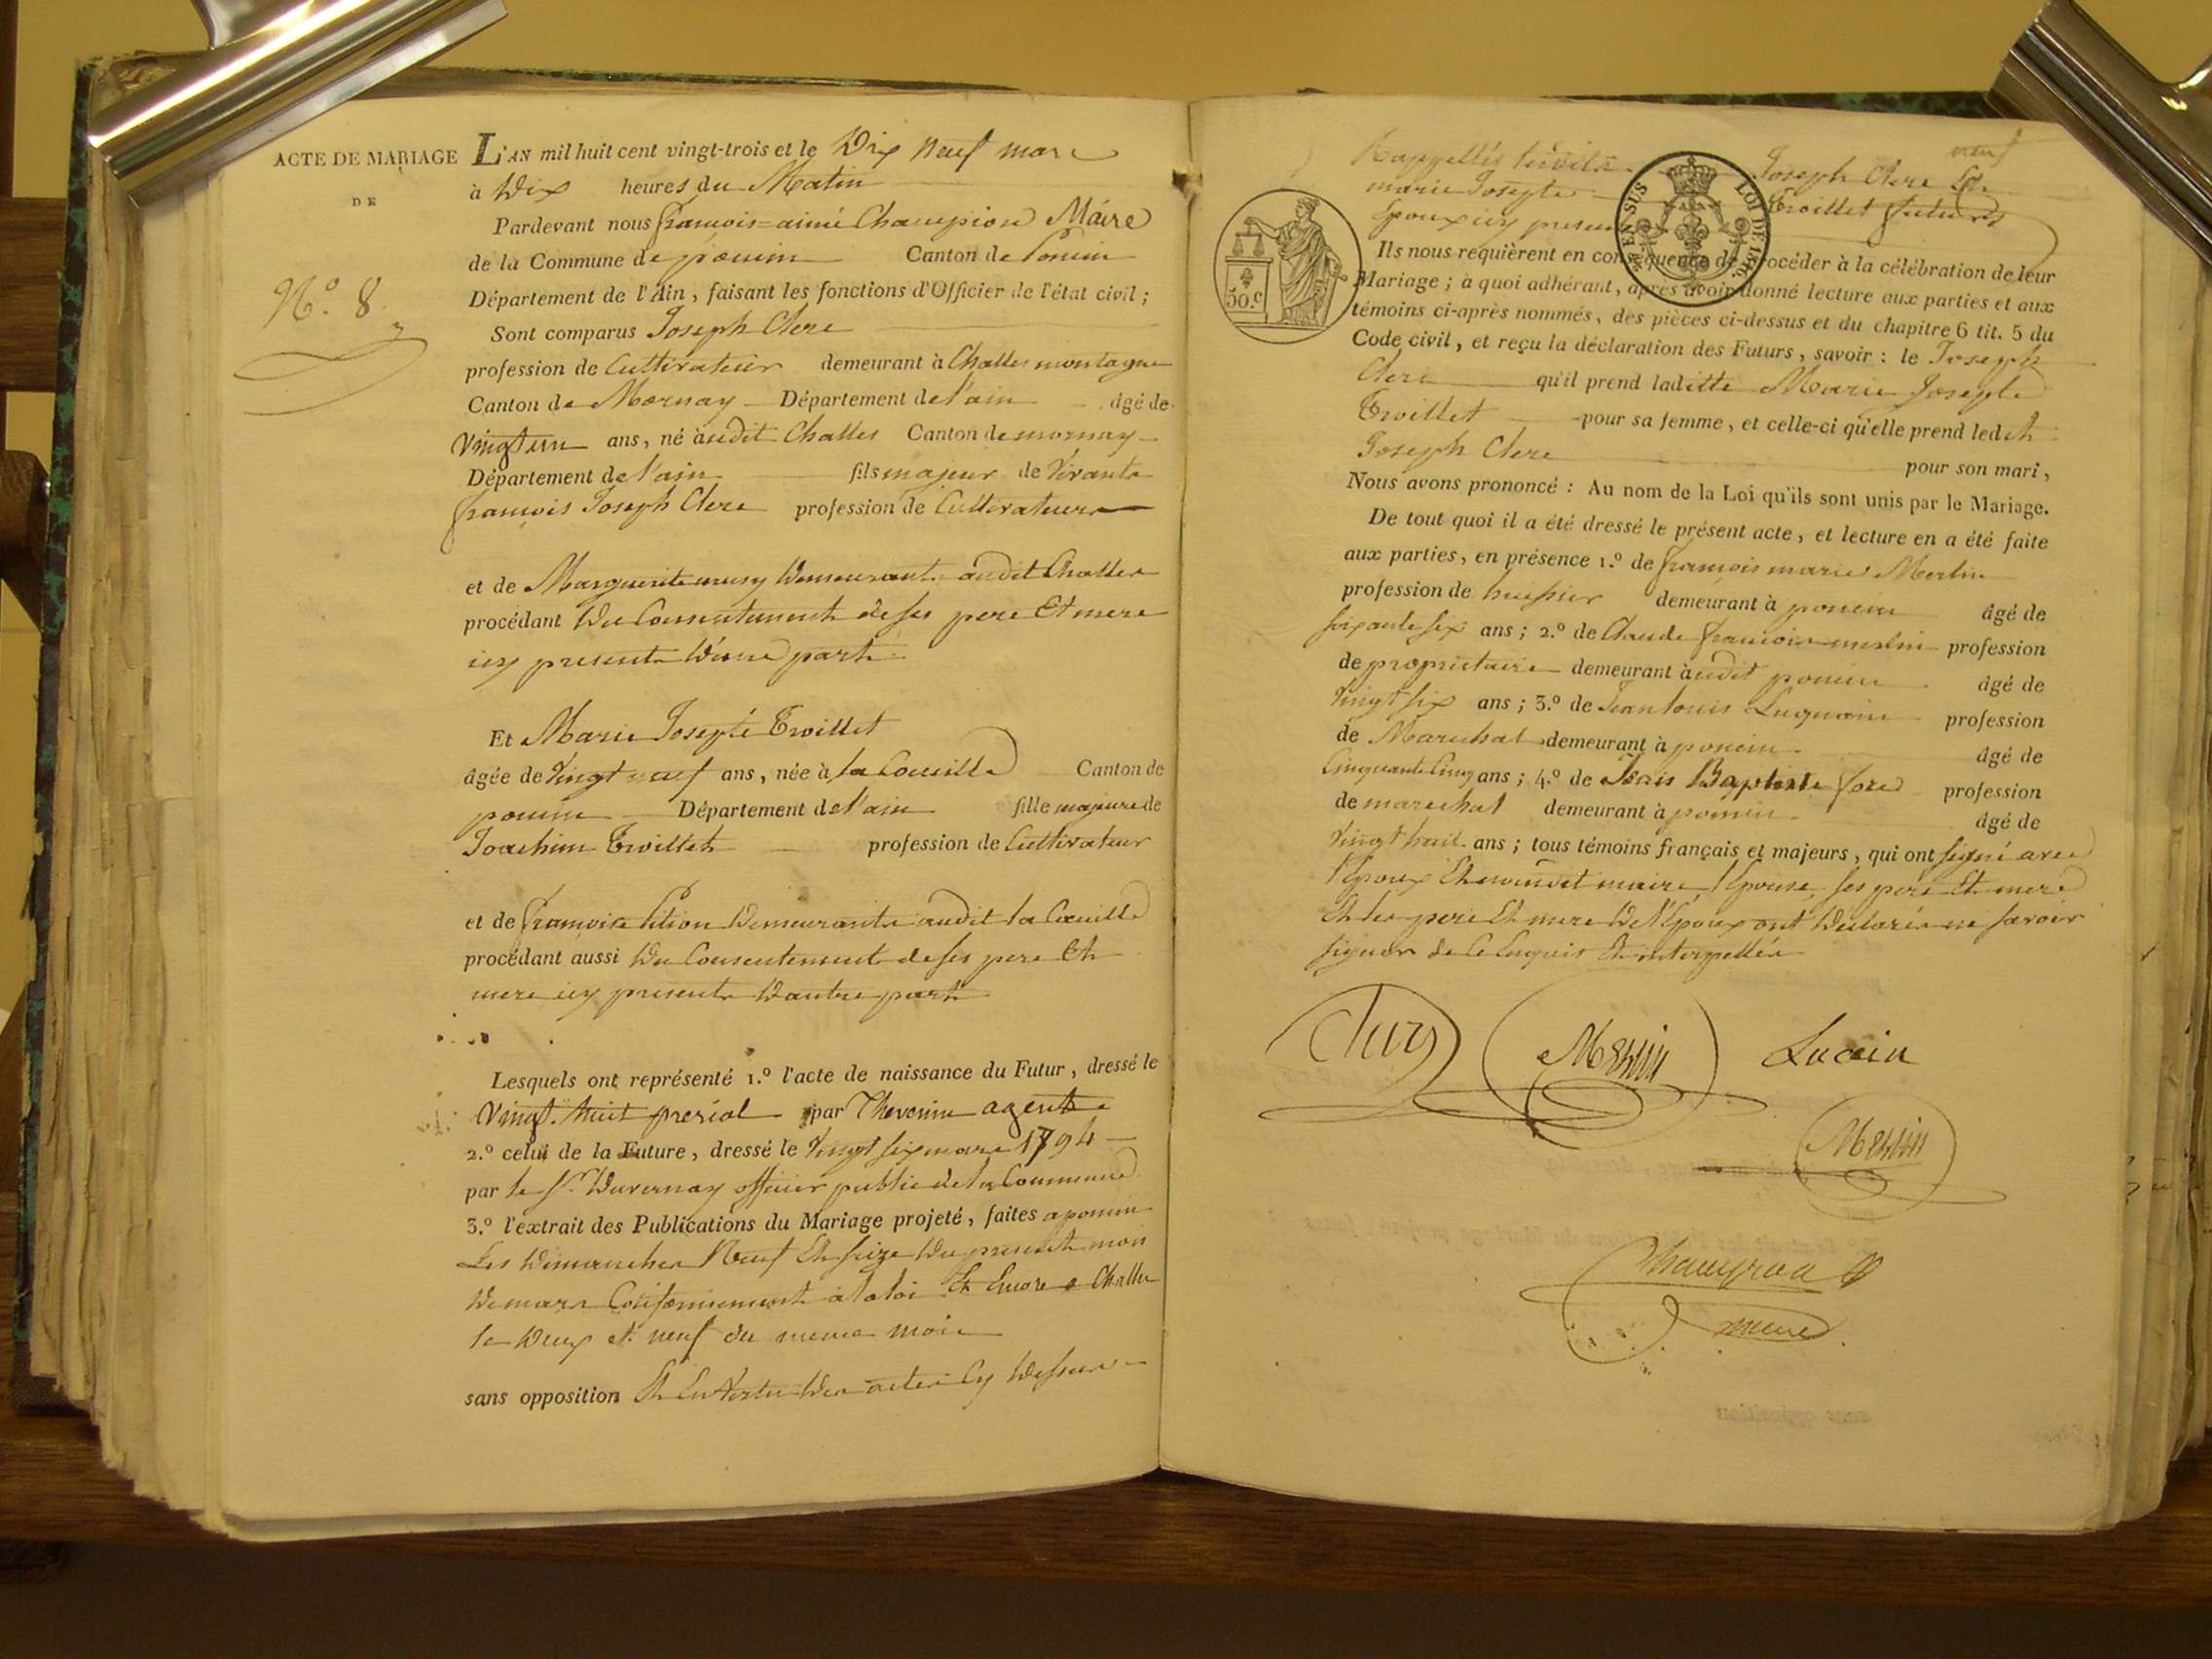 ACTE DE MARIAGE
DE
N.o 8
L'AN mil huit cent vingt-trois et le Dix neuf mars
à Dix heures du Matin
Pardevant nous françois=aimé Champion Maire
de la Commune de poncin Canton de Poncin
Département de l'Ain, faisant les fonctions d'Officier de l'état civil;
Sont comparus Joseph Clerc
profession de Cultivateur demeurant à Challes montagne
Canton de Mornay Département de l'ain âgé de
vingt un ans, né audit Challes Canton de mornay
Département de l'ain fils majeur de vivants
françois Joseph Clerc profession de Cultivateurs
et de Marguerite musy Demeurants audit Challes
procédant Du Consentement de ses pere Et mere
icy presents D'une part
Et Marie Josephe Troillet
âgée de vingt neuf ans, née à la Coueille Canton de
poncin Département de l'ain fille majeure de
Joachim Troillet profession de Cultivateur
et de françoise Pition Demeurants audit la Coueille
procédant aussi Du Consentement de ses pere Et
mere icy presents D'autre part
Lesquels ont représenté 1.o l'acte de naissance du Futur, dressé le
vingt. huit prerial par Thevenin agent
2.o celui de la Future, dressé le vingt six mars 1794
par le Sr. Duvernay officier public de la Commune
3.o l'extrait des Publications du Mariage projeté, faites a poncin
Les Dimanches Neuf Et seize Du present mois
De mars Conformement a la loi Et Encore a Challes
le Deux et neuf du meme mois
sans opposition Et En Vertu Des actes Cy Dessus
Rappellés Joseph Clerc Et
marie Josephe Troillet futures
Epoux icy presents
50.c
EN SUS LOI DE 1816.
Ils nous requièrent en conséquence de procéder à la célébration de leur
Mariage; à quoi adhérant, après avoir donné lecture aux parties et aux
témoins ci-après nommés, des pièces ci-dessus et du chapitre 6 tit. 5 du
Code civil, et reçu la déclaration des Futurs, savoir: le Joseph
Clerc qu'il prend laditte Marie Josephe
Troillet pour sa femme, et celle-ci qu'elle prend ledit
Joseph Clerc pour son mari,
Nous avons prononcé: Au nom de la Loi qu'ils sont unis par le Mariage.
De tout quoi il a été dressé le présent acte, et lecture en a été faite
aux parties, en présence 1.o de françois marie Merlin
profession de huissier demeurant à poncin âgé de
soixante six ans; 2.o de Claude françois merlin profession
de proprietaire demeurant audit poncin âgé de
vingt six ans; 3.o de Jean louis Luquain profession
de Marechal demeurant à poncin âgé de
Cinquante Cinq ans; 4.o de Jean Baptiste fore profession
de marechal demeurant à poncin âgé de
vingt huit ans; tous témoins français et majeurs, qui ont signé avec
l'Epoux Et nousdit maire, l'Epouse, ses pere Et mere
Et les pere Et mere De l'Epoux ont Déclarés ne savoir
signer de Ce Enquis Et interpellés
Merlin
Lucain
Merlin
Champion
maire